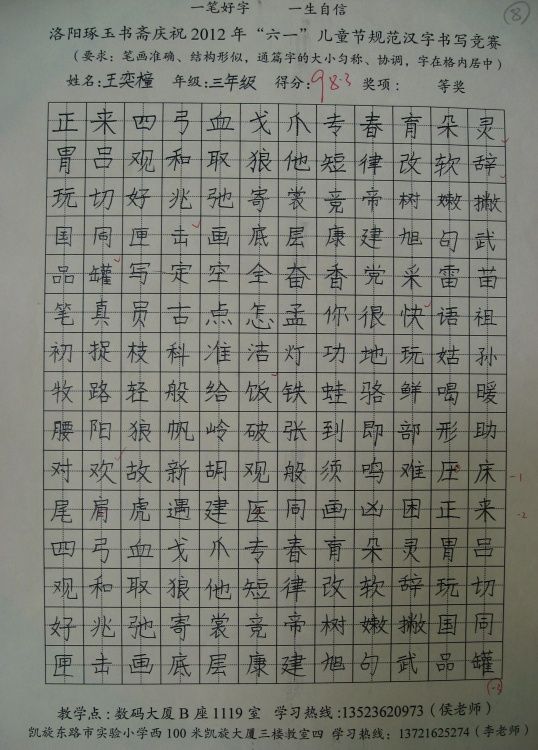 一笔好字 一生自信
⑧
洛阳琢玉书斋庆祝 2012 年“六一”儿童节规范汉字书写竞赛
(要求:笔画准确、结构形似,通篇字的大小匀称、协调,字在格内居中)
姓名:王奕橦 年级:三年级 得分:98.3 奖项: 等奖
正来四弓血戈爪专春育朵灵
胃吕观和取狼他短律改软辞
玩切好兆弛寄裳竟帝树嫩撇
国同匣击画底层康建旭句武
品罐写定空全奋香党采雷苗
笔真员古点怎孟你很快语祖
初捉枝科准洁灯功地玩姑孙
牧路轻般给饭铁蛙骆鲜喝暖
腰阳狼帆岭破张到即部形助
对欢故新胡观般须鸣难压床
-1
尾肩虎遇建医同画凶困正来
-2
四弓血戈爪专春育朵灵胃吕
观和取狼他短律改软辞玩切
好兆弛寄裳竟帝树嫩撇国同
匣击画底层康建旭句武品罐
教学点:数码大厦 B 座 1119 室 学习热线:13523620973(侯老师)
凯旋东路市实验小学西 100 米凯旋大厦三楼教室四 学习热线:13721625274(李老师)